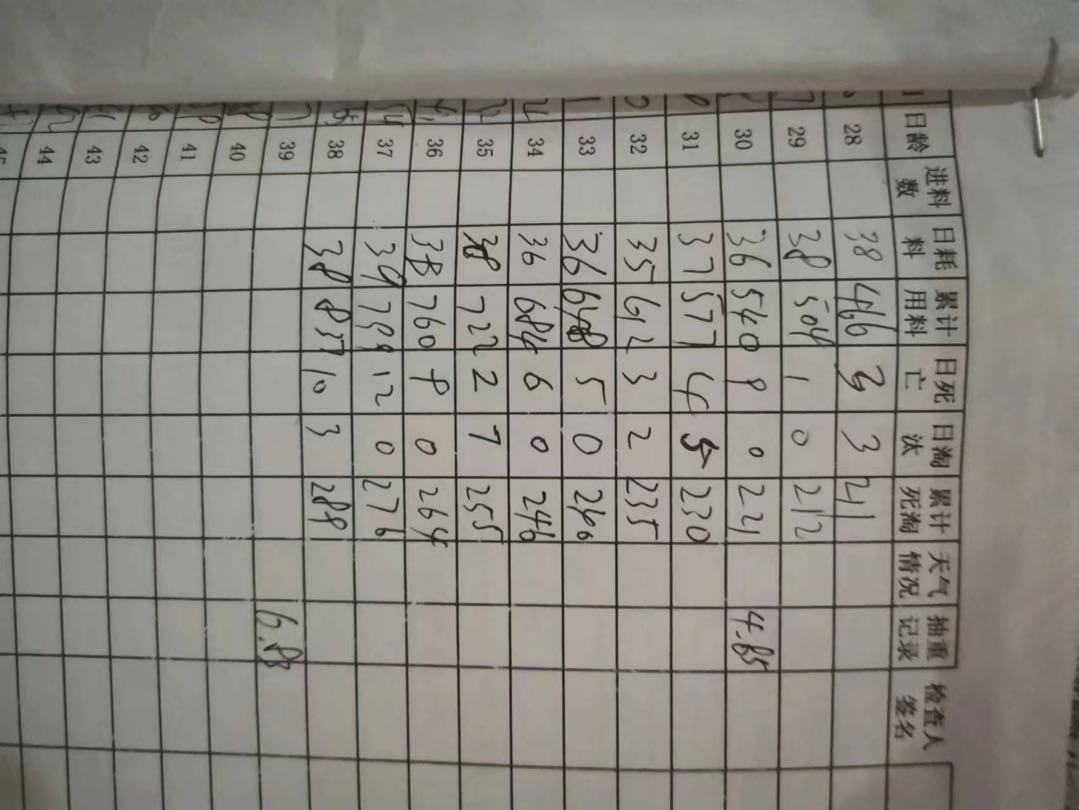 日龄 进料数 日耗料 累计用料 日死亡 日淘汰 累计死淘 天气情况 抽重记录 检查人签名
28 38 466 3 3 211
29 38 504 1 0 212
30 36 540 9 0 221 4.85
31 37 577 4 5 230
32 35 612 3 2 235
33 36 648 5 0 240
34 36 684 6 0 246
35 38 722 2 7 255
36 38 760 9 0 264
37 39 799 12 0 276
38 38 837 10 3 289
39 6.88
40
41
42
43
44
45